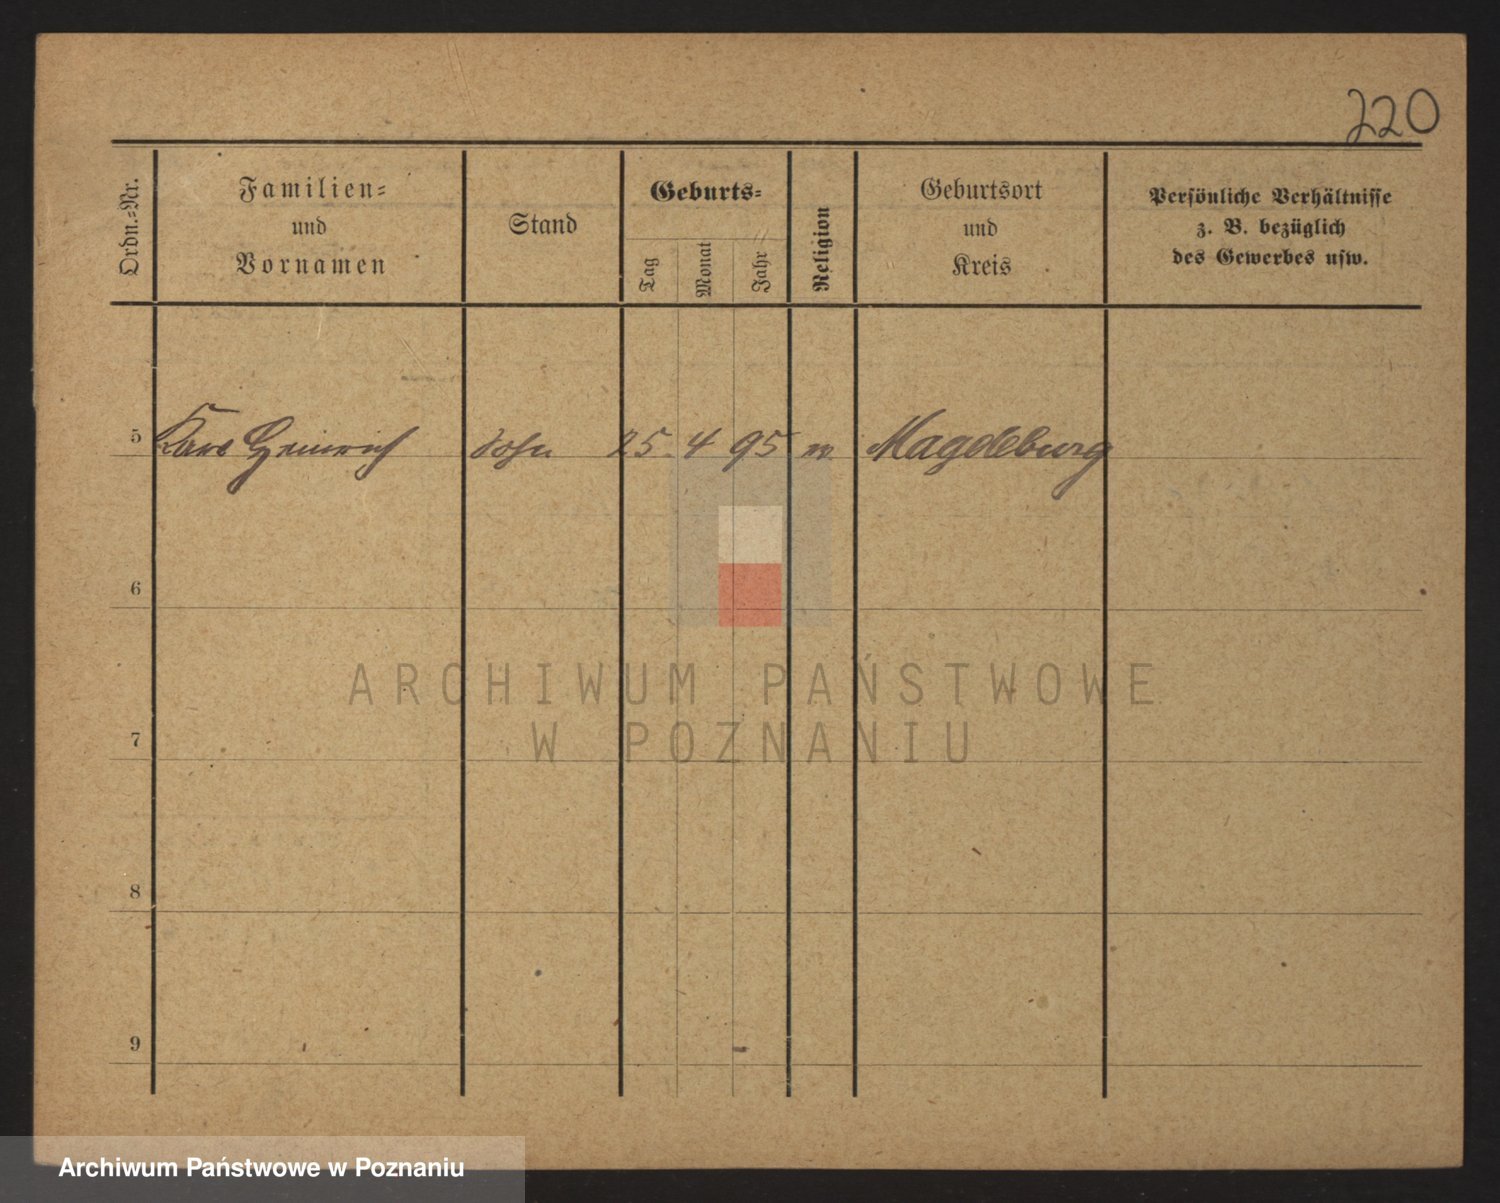 220
Ordn.=Nr.
Familien=
und
Vornamen
Stand
Geburts=
Tag
Monat
Jahr
Religion
Geburtsort
und
Kreis
Persönliche Verhältnisse
z. B. bezüglich
des Gewerbes usw.
5 Karl Heinrich Sohn 25 4 95 Magdeburg
6
ARCHIWUM PAŃSTWOWE
W POZNANIU
7
8
9
Archiwum Państwowe w Poznaniu